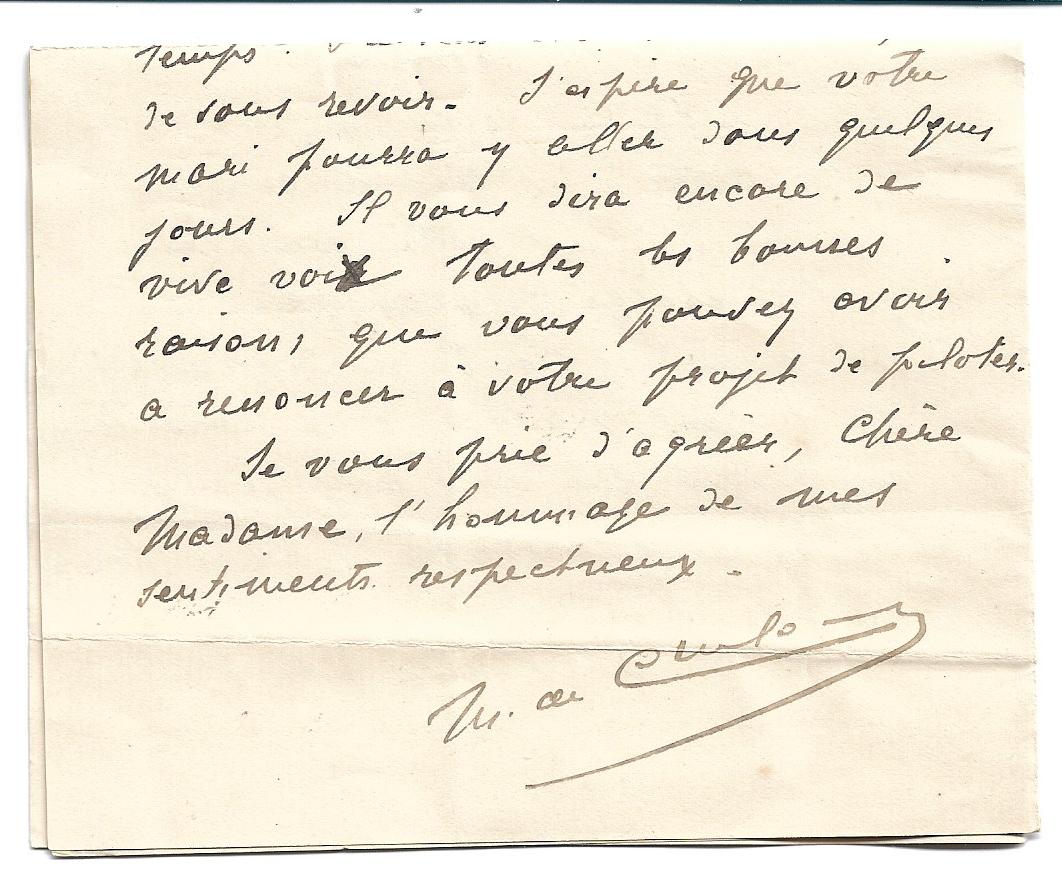 temps.
de vous revoir. J'espère que votre
mari pourra y aller dans quelques
jours. Il vous dira encore de
vive voix toutes les bonnes
raisons que vous pouvez avoir
a renoncer à votre projet de piloter.
Je vous prie d'agréer, Chère
Madame, l'hommage de mes
sentiments respectueux.
M. de